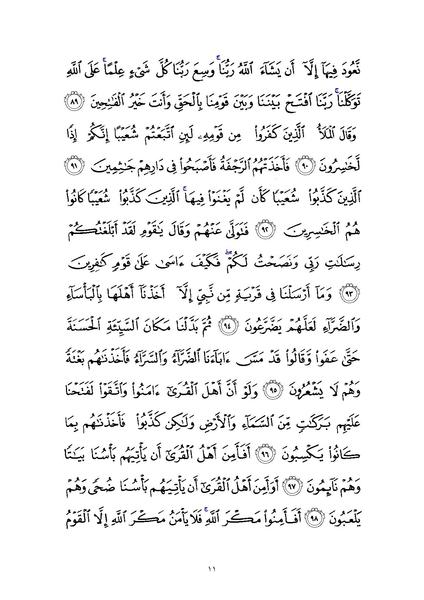 نَّعُودَ فِيهَآ إِلَّآ أَن يَشَآءَ ٱللَّهُ رَبُّنَا ۚ وَسِعَ رَبُّنَا كُلَّ شَىْءٍ عِلْمًا ۚ عَلَى ٱللَّهِ
تَوَكَّلْنَا ۚ رَبَّنَا ٱفْتَحْ بَيْنَنَا وَبَيْنَ قَوْمِنَا بِٱلْحَقِّ وَأَنتَ خَيْرُ ٱلْفَٰتِحِينَ ﴿٨٩﴾
وَقَالَ ٱلْمَلَأُ ٱلَّذِينَ كَفَرُوا۟ مِن قَوْمِهِۦ لَئِنِ ٱتَّبَعْتُمْ شُعَيْبًا إِنَّكُمْ إِذًا
لَّخَٰسِرُونَ ﴿٩٠﴾ فَأَخَذَتْهُمُ ٱلرَّجْفَةُ فَأَصْبَحُوا۟ فِى دَارِهِمْ جَٰثِمِينَ ﴿٩١﴾
ٱلَّذِينَ كَذَّبُوا۟ شُعَيْبًا كَأَن لَّمْ يَغْنَوْا۟ فِيهَا ۚ ٱلَّذِينَ كَذَّبُوا۟ شُعَيْبًا كَانُوا۟
هُمُ ٱلْخَٰسِرِينَ ﴿٩٢﴾ فَتَوَلَّىٰ عَنْهُمْ وَقَالَ يَٰقَوْمِ لَقَدْ أَبْلَغْتُكُمْ
رِسَٰلَٰتِ رَبِّى وَنَصَحْتُ لَكُمْ ۖ فَكَيْفَ ءَاسَىٰ عَلَىٰ قَوْمٍ كَٰفِرِينَ
﴿٩٣﴾ وَمَآ أَرْسَلْنَا فِى قَرْيَةٍ مِّن نَّبِىٍّ إِلَّآ أَخَذْنَآ أَهْلَهَا بِٱلْبَأْسَآءِ
وَٱلضَّرَّآءِ لَعَلَّهُمْ يَضَّرَّعُونَ ﴿٩٤﴾ ثُمَّ بَدَّلْنَا مَكَانَ ٱلسَّيِّئَةِ ٱلْحَسَنَةَ
حَتَّىٰ عَفَوا۟ وَّقَالُوا۟ قَدْ مَسَّ ءَابَآءَنَا ٱلضَّرَّآءُ وَٱلسَّرَّآءُ فَأَخَذْنَٰهُم بَغْتَةً
وَهُمْ لَا يَشْعُرُونَ ﴿٩٥﴾ وَلَوْ أَنَّ أَهْلَ ٱلْقُرَىٰٓ ءَامَنُوا۟ وَٱتَّقَوْا۟ لَفَتَحْنَا
عَلَيْهِم بَرَكَٰتٍ مِّنَ ٱلسَّمَآءِ وَٱلْأَرْضِ وَلَٰكِن كَذَّبُوا۟ فَأَخَذْنَٰهُم بِمَا
كَانُوا۟ يَكْسِبُونَ ﴿٩٦﴾ أَفَأَمِنَ أَهْلُ ٱلْقُرَىٰٓ أَن يَأْتِيَهُم بَأْسُنَا بَيَٰتًا
وَهُمْ نَآئِمُونَ ﴿٩٧﴾ أَوَأَمِنَ أَهْلُ ٱلْقُرَىٰٓ أَن يَأْتِيَهُم بَأْسُنَا ضُحًى وَهُمْ
يَلْعَبُونَ ﴿٩٨﴾ أَفَأَمِنُوا۟ مَكْرَ ٱللَّهِ ۚ فَلَا يَأْمَنُ مَكْرَ ٱللَّهِ إِلَّا ٱلْقَوْمُ
١١